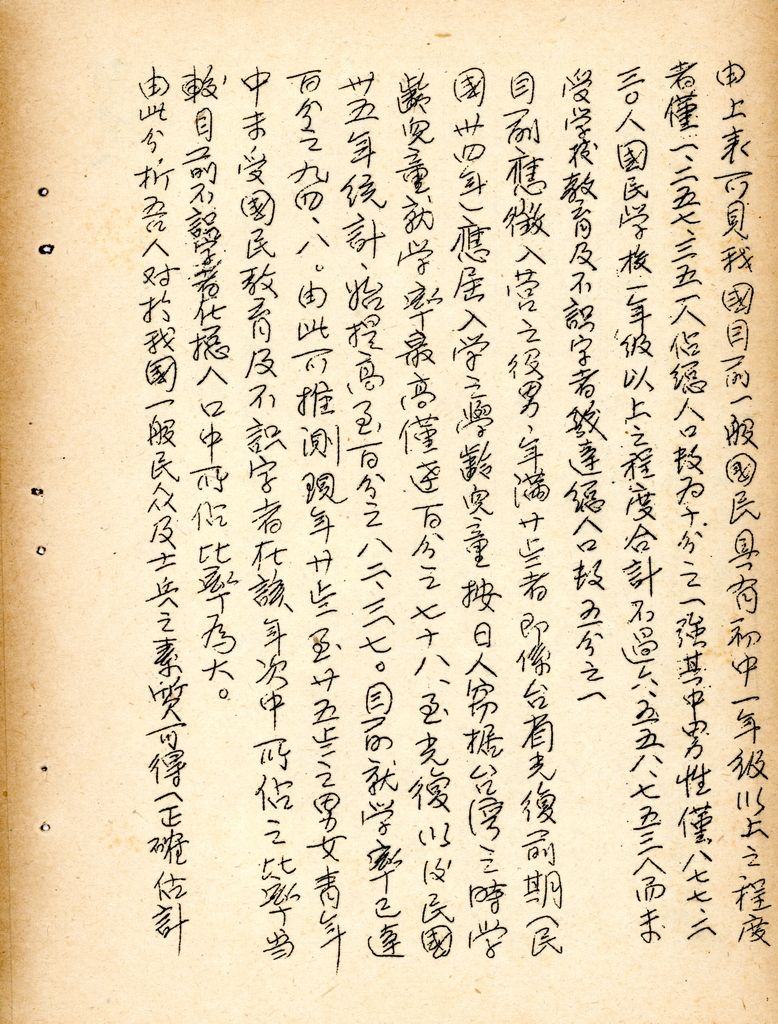 由上表可見我國目前一般國民具有初中一年級以上之程度
者僅一、二五七、三五一人佔總人口數為十分之一強其中男性僅八七七、六
三〇人國民学校一年級以上之程度合計不過六、五五八、七五三人而未
受学校教育及不識字者幾達總人口數五分之一
目前應徵入營之役男、年滿廿歲者即係台省光復前期(民
國卅四年)應屆入学之學齡兒童按日人窃據台灣之時学
齡兒童就学率最高僅達百分之七十八、至光復以後民國
卅五年統計、始提高至百分之八二、三七。目前就学率已達
百分之九四、八。由此可推測現年廿歲至廿五歲之男女青年
中未受國民教育及不識字者在該年次中所佔之比率当
較目前不識字者在總人口中所佔比率為大。
由此分析吾人对於我國一般民众及士兵之素質可得一正確估計